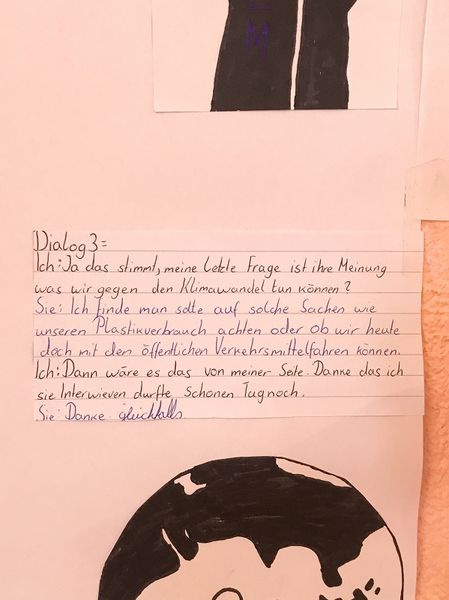 M
Dialog 3=
Ich: Ja das stimmt, meine letzte Frage ist ihre Meinung
was wir gegen den Klimawandel tun können?
Sie: Ich finde man sollte auf solche Sachen wie
unseren Plastikverbrauch achten oder ob wir heute
doch mit den öffentlichen Verkehrsmittelfahren können.
Ich: Dann wäre es das von meiner Seite. Danke das ich
sie Interwieven durfte Schönen Tag noch.
Sie: Danke gleichfalls